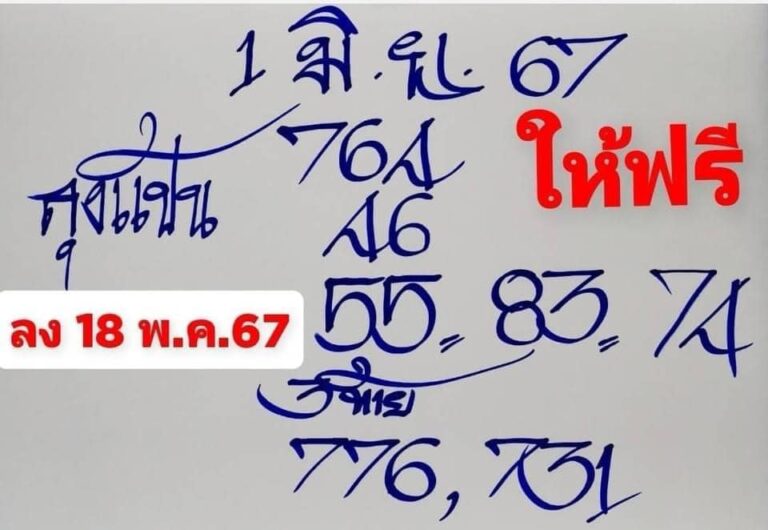 1 มิ.ย. 67
764
ให้ฟรี
46
ลง 18 พ.ค.67
55 = 83 = 74
3 ท้าย
776, 731